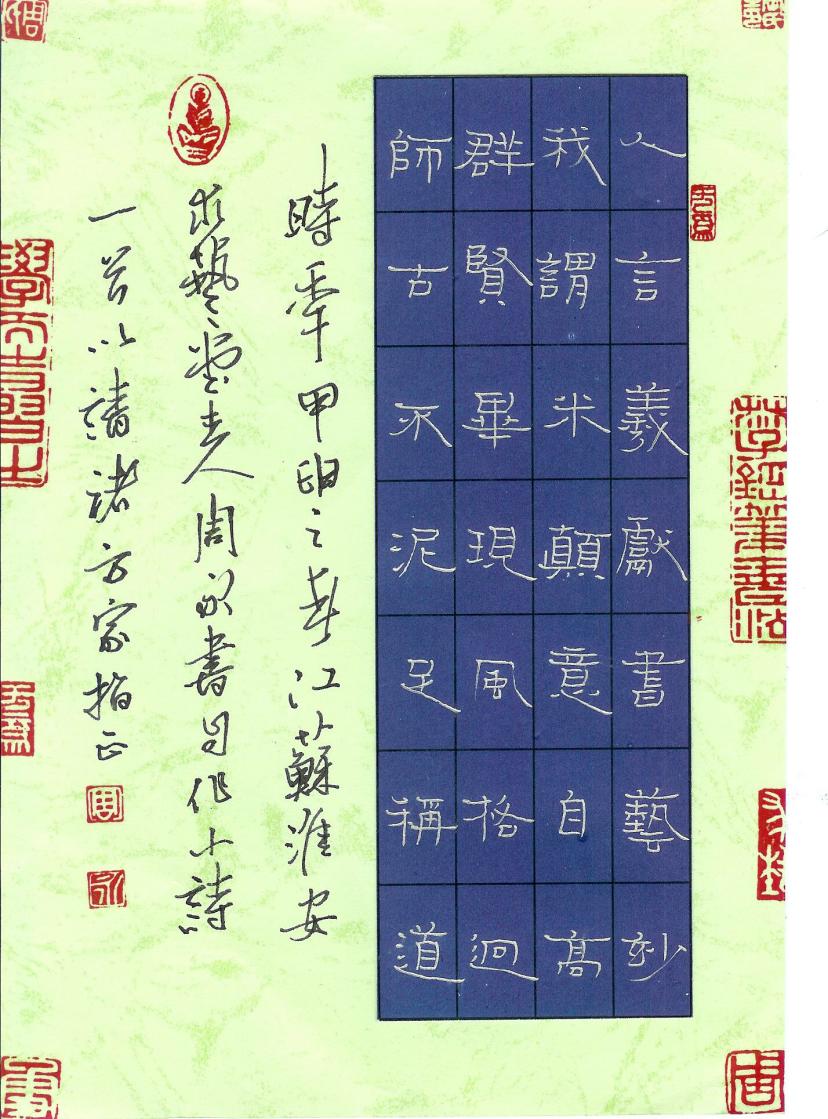 人言羲獻書藝玅
我謂米顛意自高
群賢畢現風格迥
師古不泥足稱道
時甲申之春江蘇淮安
求藝堂主人周永書自作小詩
一首以請諸方家指正
周
永